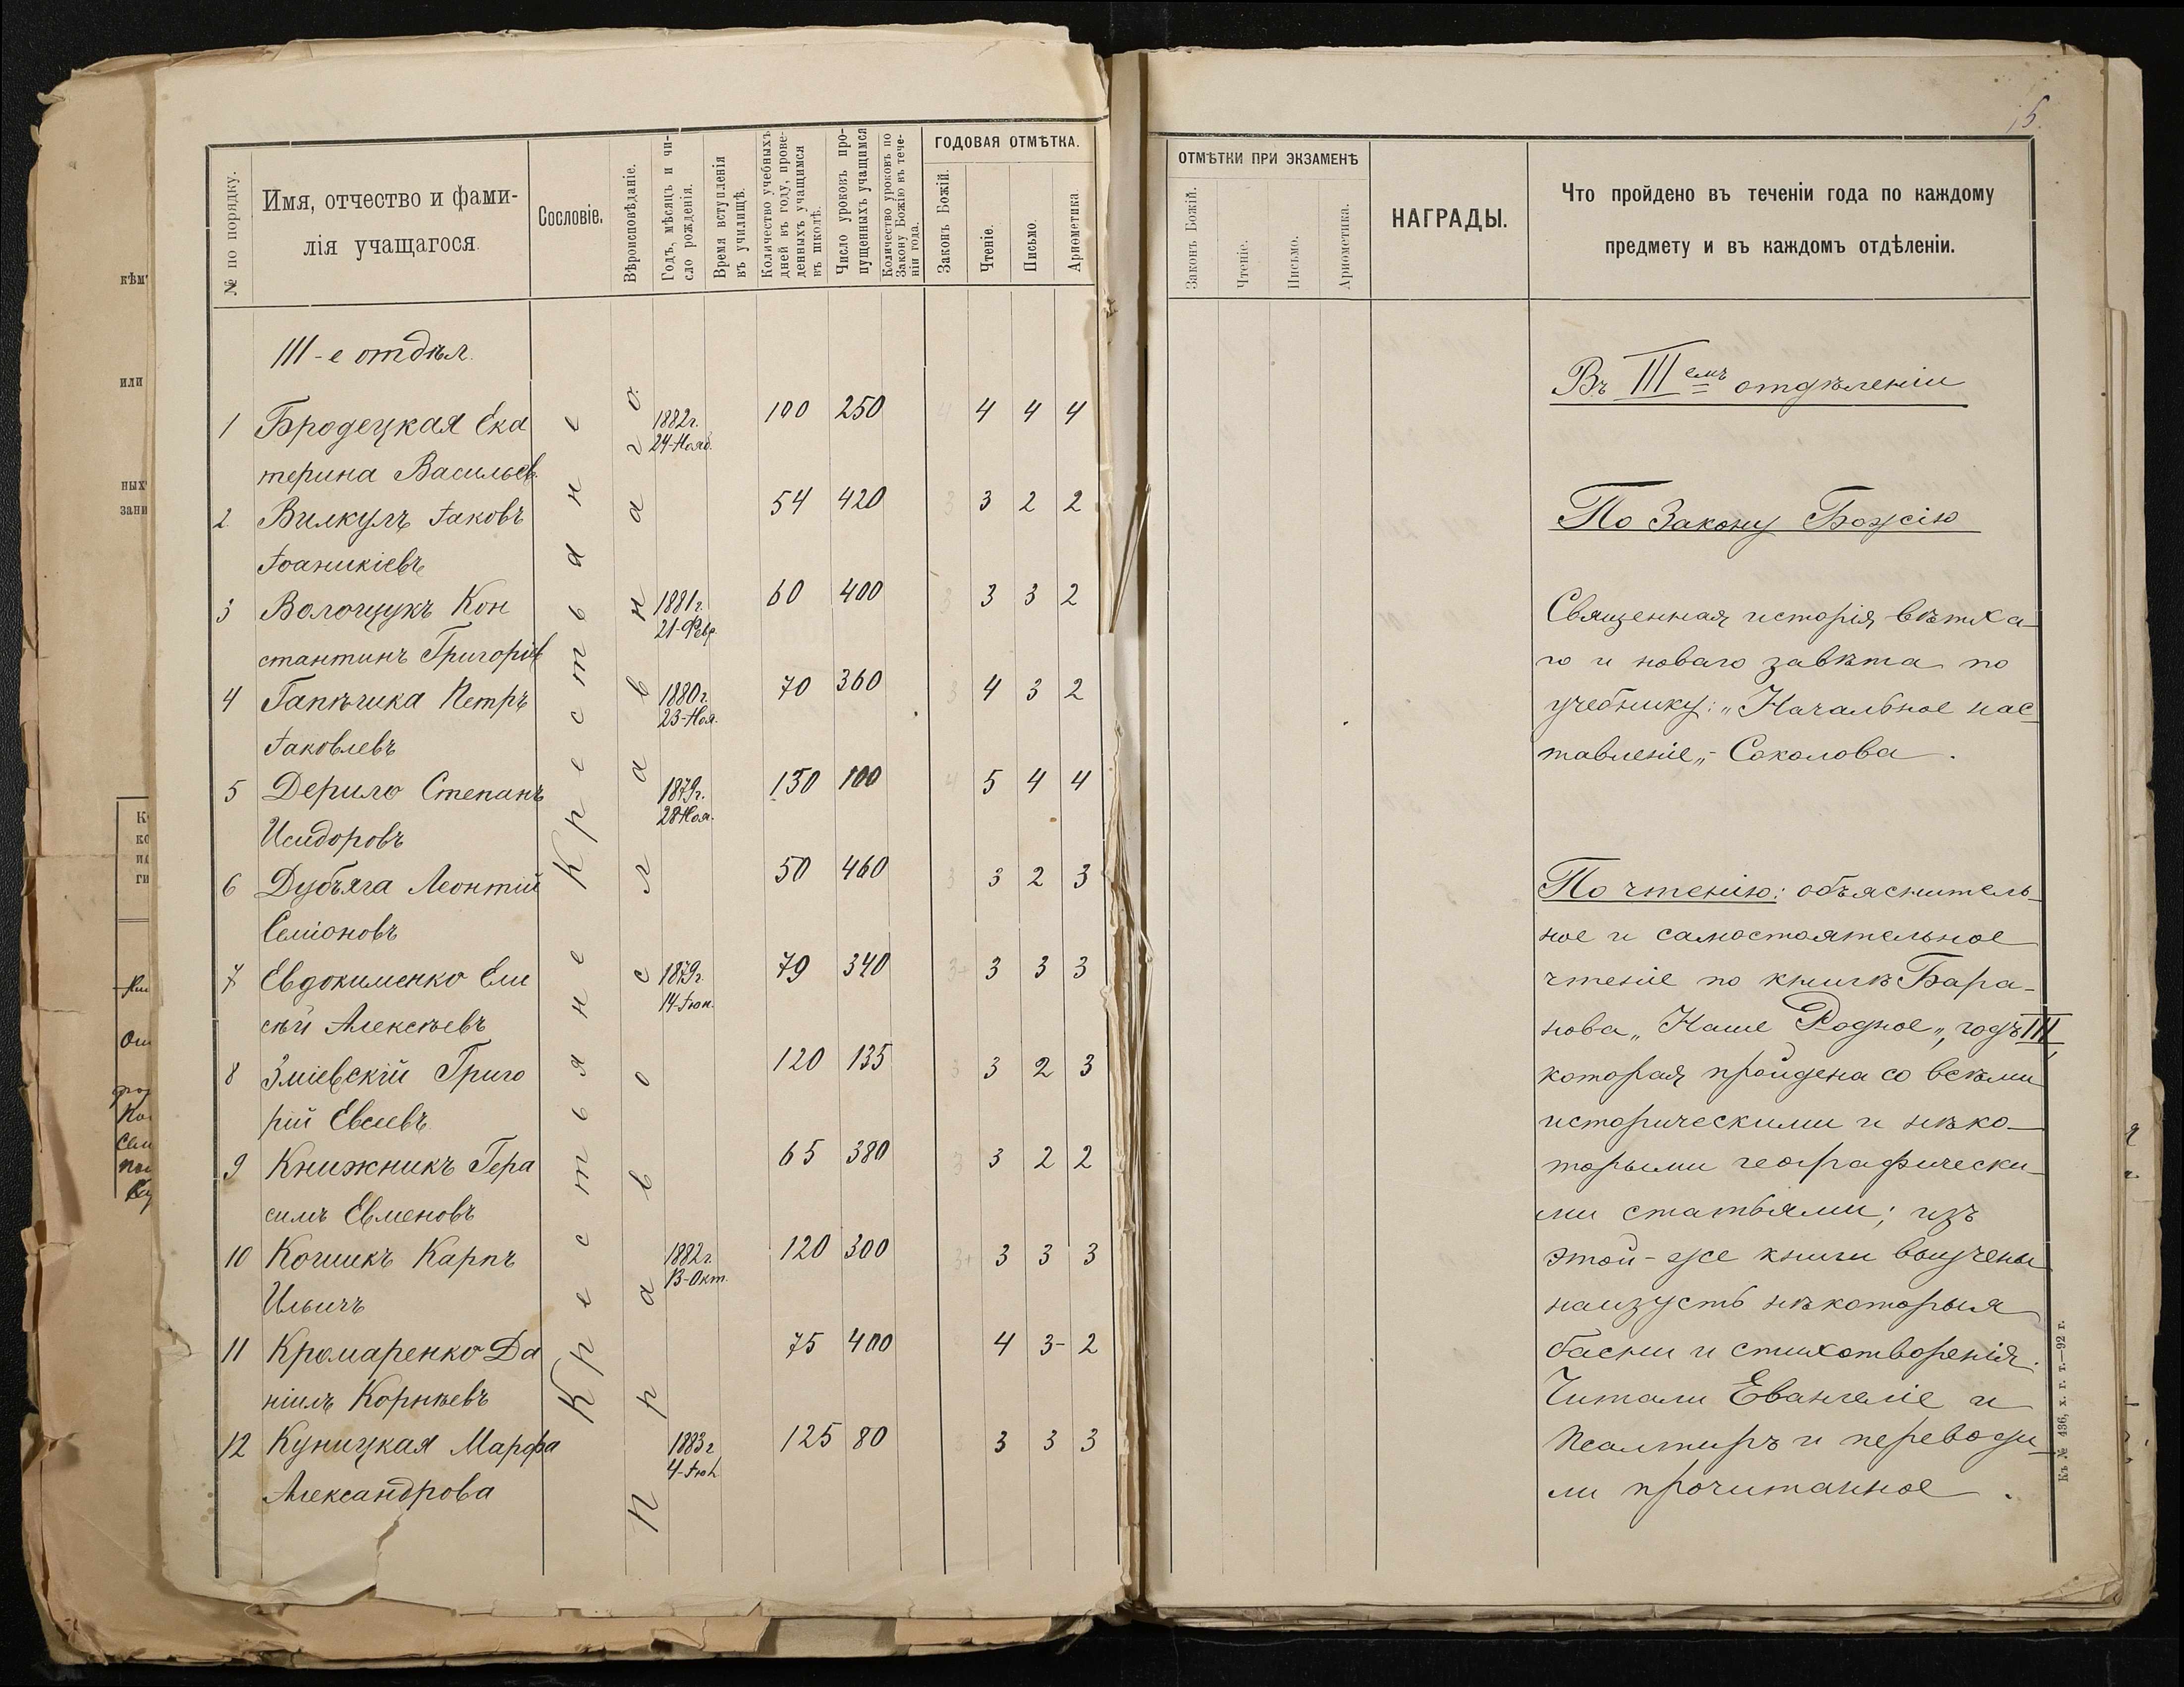 15.
№ по порядку.
Имя, отчество и фами-
лія учащагося.
Сословіе.
Вѣроисповѣданіе.
Годъ, мѣсяцъ и чи-
сло рожденія.
Время вступленія
въ училищѣ.
Количество учебныхъ
дней въ году, прове-
денныхъ учащимся
въ школѣ.
Число уроковъ про-
пущенныхъ учащимся
Количество уроковъ по
Закону Божію въ тече-
ніи года.
ГОДОВАЯ ОТМѢТКА.
Законъ Божій.
Чтеніе.
Письмо.
Ариѳметика
ОТМѢТКИ ПРИ ЭКЗАМЕНѢ
Законъ Божій.
Чтеніе.
Письмо.
Ариѳметика.
НАГРАДЫ.
Что пройдено въ теченіи года по каждому
предмету и въ каждомъ отдѣленіи.
III-е отдѣл.
Крестьяне
Крестьяне
Православнаго
1 Бродецкая Ека 1882г. 100 250 4 4 4 4
терина Васильев. 24-Нояб.
2 Вилкулъ Іаковъ 54 420 3 3 2 2
Іоаникіевъ
3 Волощукъ Кон 1881г. 60 400 3 3 3 2
стантинъ Григоріев 21-Февр.
4 Гапѣчика Петръ 1880г. 70 360 3 4 3 2
Іаковлевъ 23-Ноя.
5 Дерило Степанъ 1879г. 130 100 4 5 4 4
Исидоровъ 28-Ноя.
6 Дубъяга Леонтій 50 460 3 3 2 3
Семіоновъ
7 Евдокименко Ели 1879г. 79 340 3+ 3 3 3
сѣй Алексѣевъ 14-Іюн.
8 Зміевскій Григо 120 135 3 3 2 3
рій Евсеевъ
9 Книжникъ Гера 65 380 3 3 2 2
симъ Евменовъ
10 Кошикъ Карпъ 1882г. 120 300 3+ 3 3 3
Ильичъ 13-Окт.
11 Кромаренко Да 75 400 4 3- 2
ніилъ Корнѣевъ
12 Куницкая Марфа 1883г 125 80 3 3 3
Александрова
Въ IIIемъ отдѣленіи
По Закону Божію
Священная исторія ветха-
го и новаго завѣта по
учебнику: „Начальное нас-
тавленіе„ - Соколова.
По чтенію: объяснитель-
ное и самостоятельное
чтеніе по книгѣ Бара-
нова „Наше Родное„, годъ III,
которая пройдена со всѣми
историческими и нѣко-
торыми географически-
ми статьями; изъ
этой-же книги выучены
наизусть нѣкоторыя
басни и стихотворенія.
Читали Евангеліе и
Псалтирь и переводи-
ли прочитанное.
Къ № 436, х. г. т.—92 г.